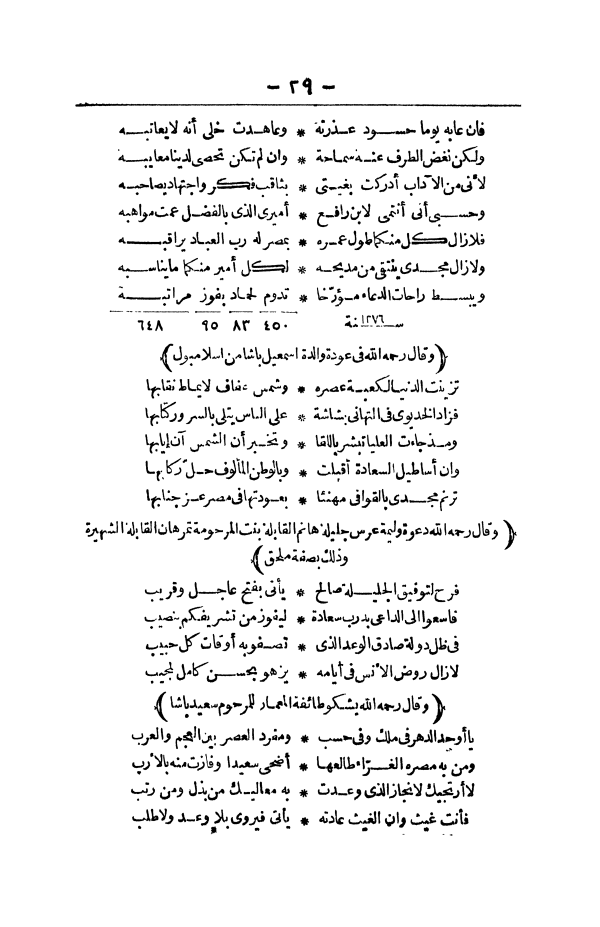 - ٢٩ -
فان عابه يوما حسود عذرته * وعاهدت خلى أنه لا يعاتبه
ولكن نغض الطرف عنه سماحة * وان لم تكن تحصى لدينا معايبه
لأنى من الآداب أدركت بغيتى * بثاقب فكر واجتهاد يصاحبه
وحسبى أنى أنتمى لابن رافع * أميرى الذى بالفضل عمت مواهبه
فلا زال كل منكما طول عمره * بمصر له رب العباد يراقبه
ولا زال مجدى ينتقى من مديحه * لكل أمير منكما ما يناسبه
ويبسط راحات الدعاء مؤرّخا * تدوم لحماد بفوز مراتبه
سنة ١٢٧٦ ٤٥٠ ٨٣ ٩٥ ٦٤٨
﴿ وقال رحمه الله فى عودة والدة اسمعيل باشا من اسلامبول ﴾
تزينت الدنيا لكعبة عصره * وشمس عفاف لا يماط نقابها
فزاد الخديوى فى التهانى بشاشة * على الناس يتلى بالسرور كتابها
ومذ جاءت العليا تبشر باللقا * وتخبر أن الشمس آن إيابها
وان أساطيل السعادة أقبلت * وبالوطن المألوف حل ركابها
ترنم مجدى بالقوافى مهنئا * بعودتها فى مصر عز جنابها
﴿ وقال رحمه الله دعوة وليمة عرس جليله هانم القابلة بنت المرحومة تمرهان القابلة الشهيرة
وذلك بصفة ملحق ﴾
فرح لتوفيق الجليلة صالح * يأتى بفتح عاجل وقريب
فاسعوا الى الداعى بدرب سعادة * ليفوز من تشريفكم بنصيب
فى ظل دولة صادق الوعد الذى * تصفو به أوقات كل حبيب
لا زال روض الأنس فى أيامه * يزهو بحسن كامل لمجيب
﴿ وقال رحمه الله يشكو طائفة المعمار للمرحوم سعيد باشا ﴾
يا أوحد الدهر فى ملك وفى حسب * ومفرد العصر بين العجم والعرب
ومن به مصره الغرّاء طالعها * أضحى سعيدا وفازت منه بالأرب
لا أرتجيك لانجاز الذى وعدت * به معاليك من بذل ومن رتب
فأنت غيث وان الغيث عادته * يأتى فيروى بلا وعد ولا طلب